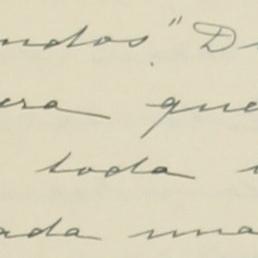 ndos." D
era que
toda
ada una